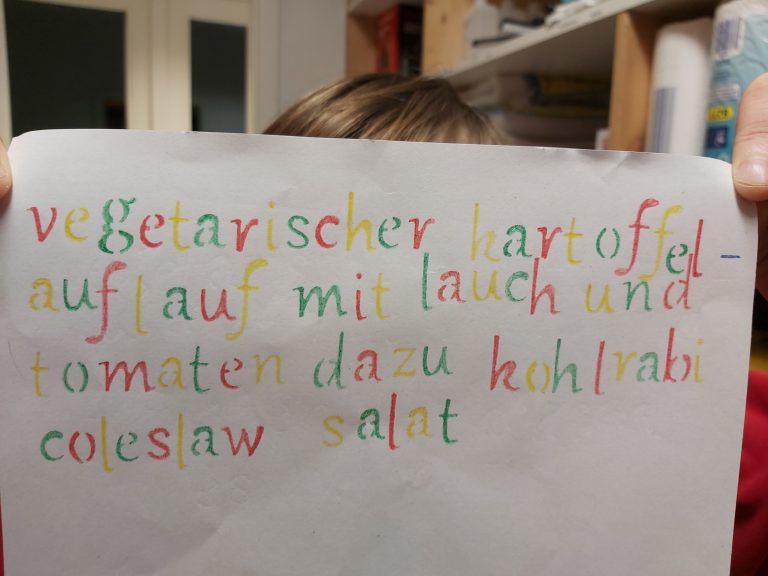 vegetarischer kartoffel-
auflauf mit lauch und
tomaten dazu kohlrabi
coleslaw salat